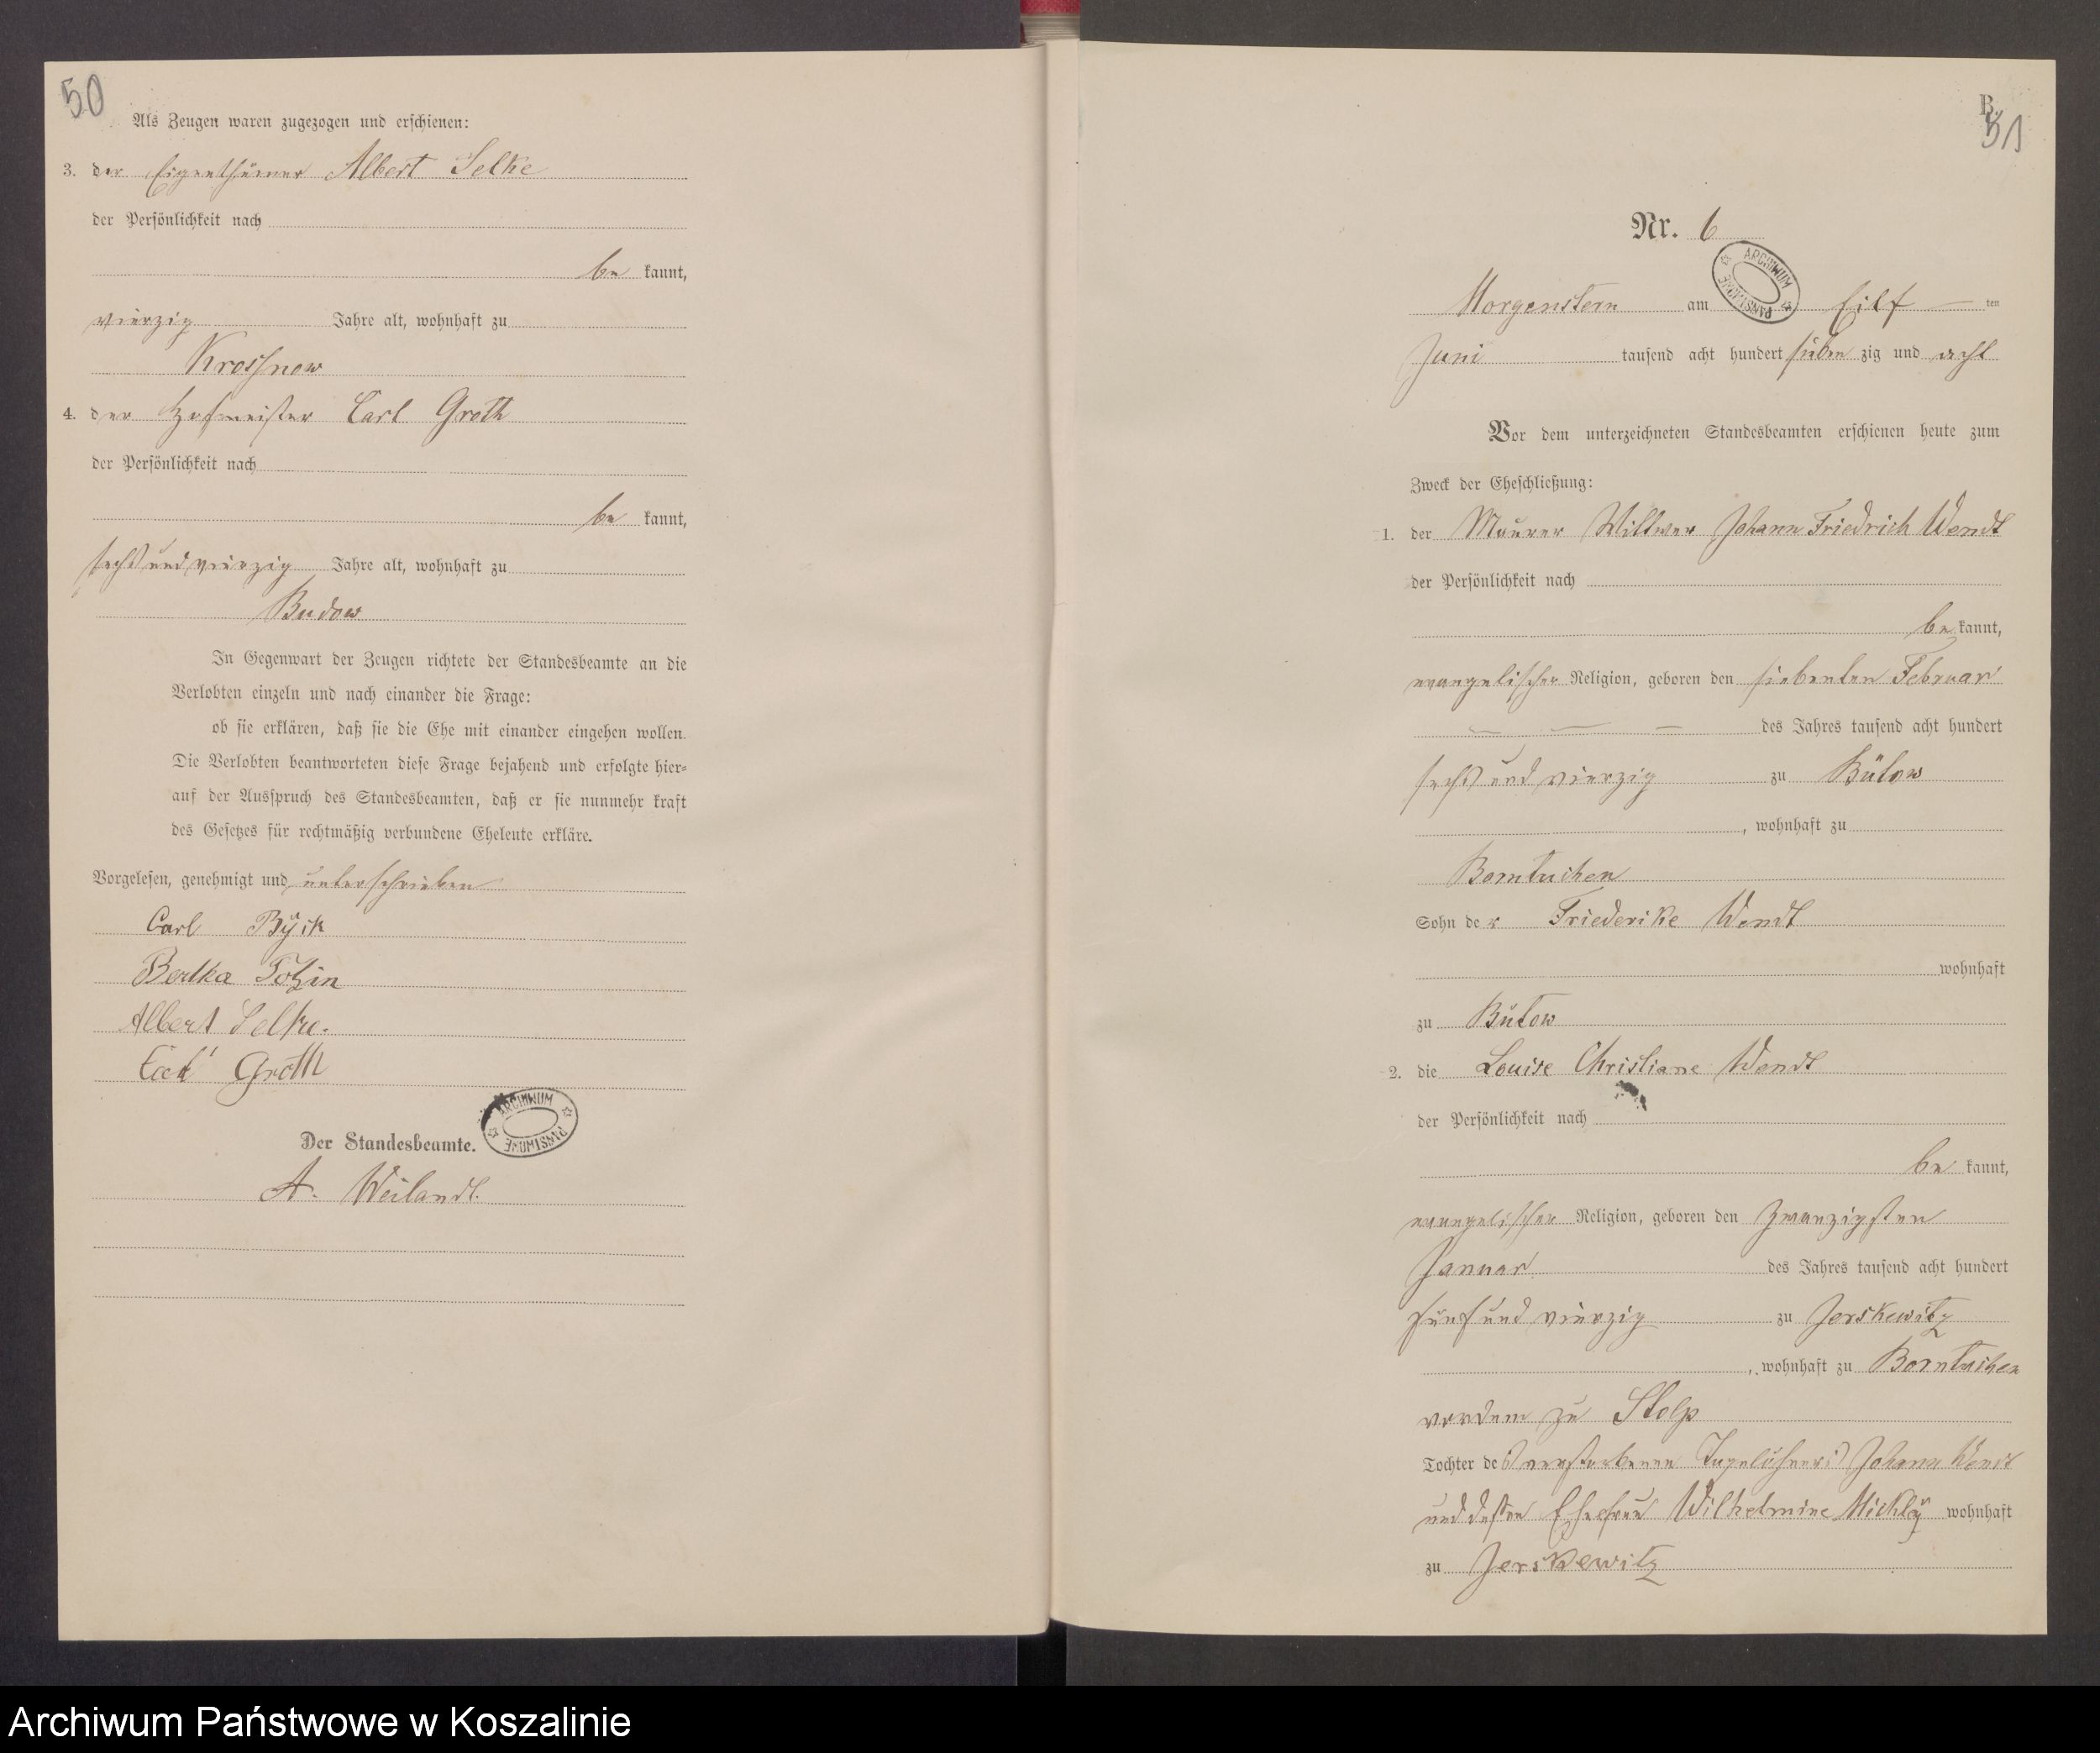 50
Als Zeugen waren zugezogen und erschienen:
3. der Eigenthümer Albert Selke
der Persönlichkeit nach
be kannt,
vierzig Jahre alt, wohnhaft zu
Krossnow
4. der Hofmeister Carl Groth
der Persönlichkeit nach
be kannt,
sechs und vierzig Jahre alt, wohnhaft zu
Budow
In Gegenwart der Zeugen richtete der Standesbeamte an die
Verlobten einzeln und nach einander die Frage:
ob sie erklären, daß sie die Ehe mit einander eingehen wollen.
Die Verlobten beantworteten diese Frage bejahend und erfolgte hier-
auf der Ausspruch des Standesbeamten, daß er sie nunmehr kraft
des Gesetzes für rechtmäßig verbundene Eheleute erkläre.
Vorgelesen, genehmigt und unterschrieben
Carl
Albert Selke.
Groth
ARCHIWUM PAŃSTWOWE
Der Standesbeamte.
A. Weilandt.
B.
51
Nr. 6
ARCHIWUM PAŃSTWOWE
Morgenstern am Eilf ten
Juni tausend acht hundert sieben zig und acht
Vor dem unterzeichneten Standesbeamten erschienen heute zum
Zweck der Eheschließung:
1. der Maurer Wittwer Johann Friedrich Wendt
der Persönlichkeit nach
be kannt,
evangelischer Religion, geboren den siebenten Februar
des Jahres tausend acht hundert
sechs und vierzig zu Bütow
, wohnhaft zu
Borntuchen
Sohn der Friederike Wendt
wohnhaft
zu Bütow
2. die Louise Christiane Wendt
der Persönlichkeit nach
be kannt,
evangelischer Religion, geboren den Zwanzigsten
Januar des Jahres tausend acht hundert
fünf und vierzig zu Jerskewitz
, wohnhaft zu Borntuchen
vordem zu Stolp
Tochter des verstorbenen Tagelöhners Johann
und dessen Ehefrau Wilhelmine wohnhaft
zu Jerskewitz
Archiwum Państwowe w Koszalinie